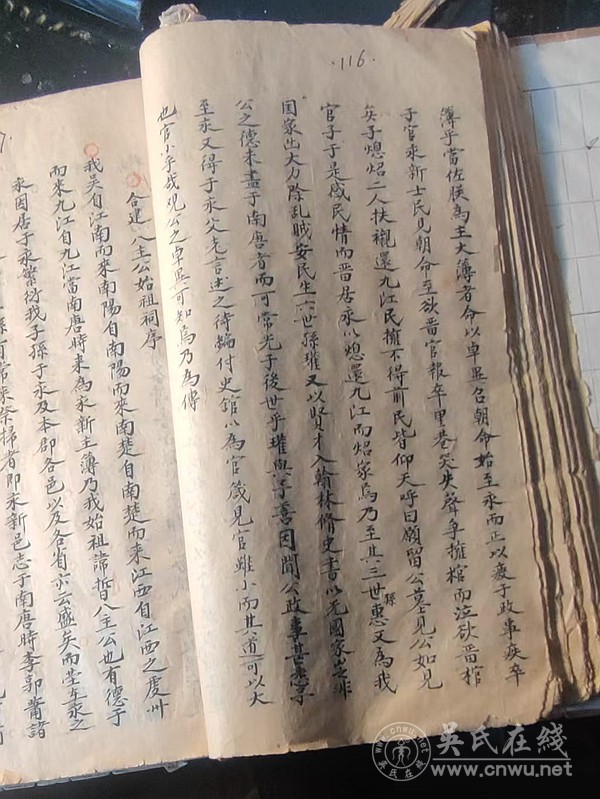 116.
簿乎當佐朕為主大薄者命以卓異召朝命始至永而正以疲于政事疾卒
于官永新士民見朝命至欲晋官報卒里巷哭失聲争擁棺而泣欲晋棺
矣子熄熖二人扶櫬還九江民擁不得前民皆仰天呼曰願留公墓見公如見
官子于是感民情而晋居永以熄還九江而熖家焉乃至其三世孫惠又為我
國家出大力除乱賊安民生六世孫㺝又以賢才入翰林脩史書以光國家豈非
公之德未盡于南唐者而可常光于後世乎㺝與予善因聞公政事甚悉予
至永又得于永父老言述之待編付史館以為官箴見官雖小而其道可以大
也官小乎哉观公之卓異可知焉乃為傳
合建八主公始祖祠序
我吴自江南而来南陽自南陽而来南楚自南楚而来江西自江西之虔州
而来九江自九江當南唐時来為永新主薄乃我始祖諱晢八主公也有德于
永因居于永繁衍我子孫于永及本郡各邑以及各省亦云盛矣而塋在永之
孫百常来祭掃者即永新邑志于南唐時李郭蕭諸
吴氏在线
www.cnwu.net